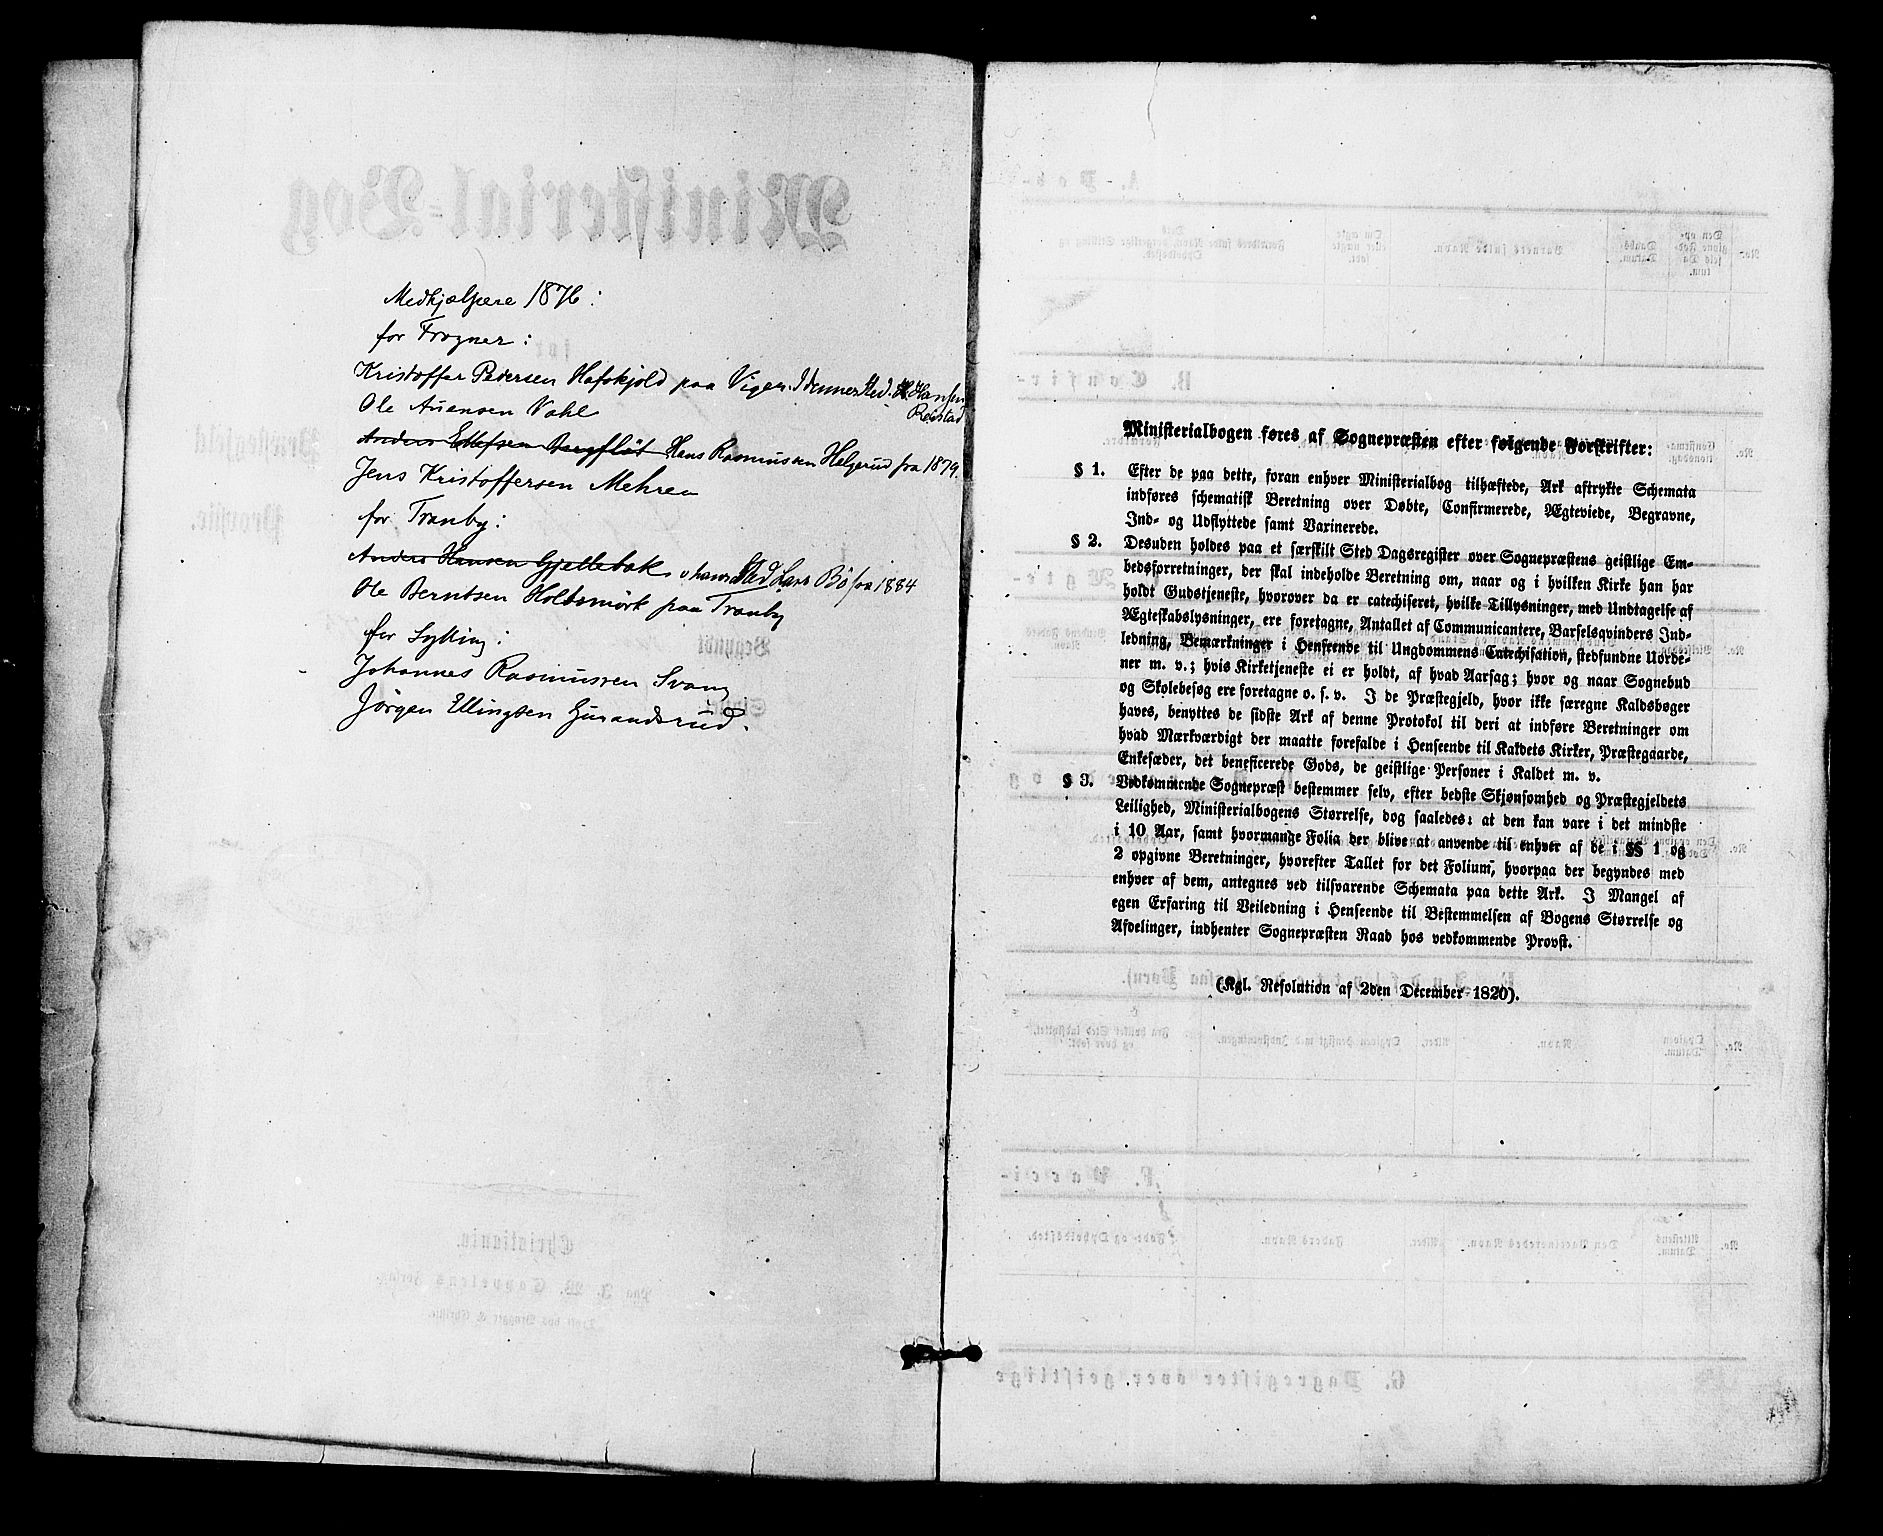 Medhjælpere 1876:
for Frogner:
Kristoffer Pedersen Hafskjold paa Vigen. I dennes Sted. H. Hansen
Reistad
Ole Auensen Vahl
Anders Ellefsen Bergfløt Hans Rasmussen Helgerud fra 1879.
Jens Kristoffersen Mehren
for Tranby:
Anders Hansen Gjellebæk, i hans Sted Lars Bö fra 1884
Ole Berntsen Holtsmörk paa Tranby
for Sylling:
Johannes Rasmussen Svang
Jörgen Ellingsen Gurandsrud.
Ministerialbogen føres af Sognepræsten efter følgende Forskrifter:
§ 1. Efter de paa dette, foran enhver Ministerialbog tilhæftede, Ark aftrykte Schemata
indføres schematisk Beretning over Døbte, Confirmerede, Ægteviede, Begravne,
Ind- og Udflyttede samt Vaxinerede.
§ 2. Desuden holdes paa et særskilt Sted Dagsregister over Sognepræstens geistlige Em-
bedsforretninger, der skal indeholde Beretning om, naar og i hvilken Kirke han har
holdt Gudstjeneste, hvorover da er catechiseret, hvilke Tillysninger, med Undtagelse af
Ægteskabslysninger, ere foretagne, Antallet af Communicantere, Barselqvinders Ind-
ledning, Bemærkninger i Henseende til Ungdommens Catechisation, stedfundne Uorde-
ner m. v.; hvis Kirketjeneste ei er holdt, af hvad Aarsag; hvor og naar Sognebud
og Skolebesøg ere foretagne o. s. v. I de Præstegjeld, hvor ikke særegne Kaldsbøger
haves, benyttes de sidste Ark af denne Protokol til deri at indføre Beretninger om
hvad Mærkværdigt der maatte forefalde i Henseende til Kaldets Kirker, Præstegaarde,
Enkesæder, det beneficerede Gods, de geistlige Personer i Kaldet m. v.
§ 3. Vedkommende Sognepræst bestemmer selv, efter bedste Skjønsomhed og Præstegjeldets
Leilighed, Ministerialbogens Størrelse, dog saaledes: at den kan vare i det mindste
i 10 Aar, samt hvormange Folia der blive at anvende til enhver af de i §§ 1 og
2 opgivne Beretninger, hvorefter Tallet for det Folium, hvorpaa der begyndes med
enhver af dem, antegnes ved tilsvarende Schemata paa dette Ark. I Mangel af
egen Erfaring til Veiledning i Henseende til Bestemmelsen af Bogens Størrelse og
Afdelinger, indhenter Sognepræsten Raad hos vedkommende Provst.
(Kgl. Resolution af 2den December 1820).